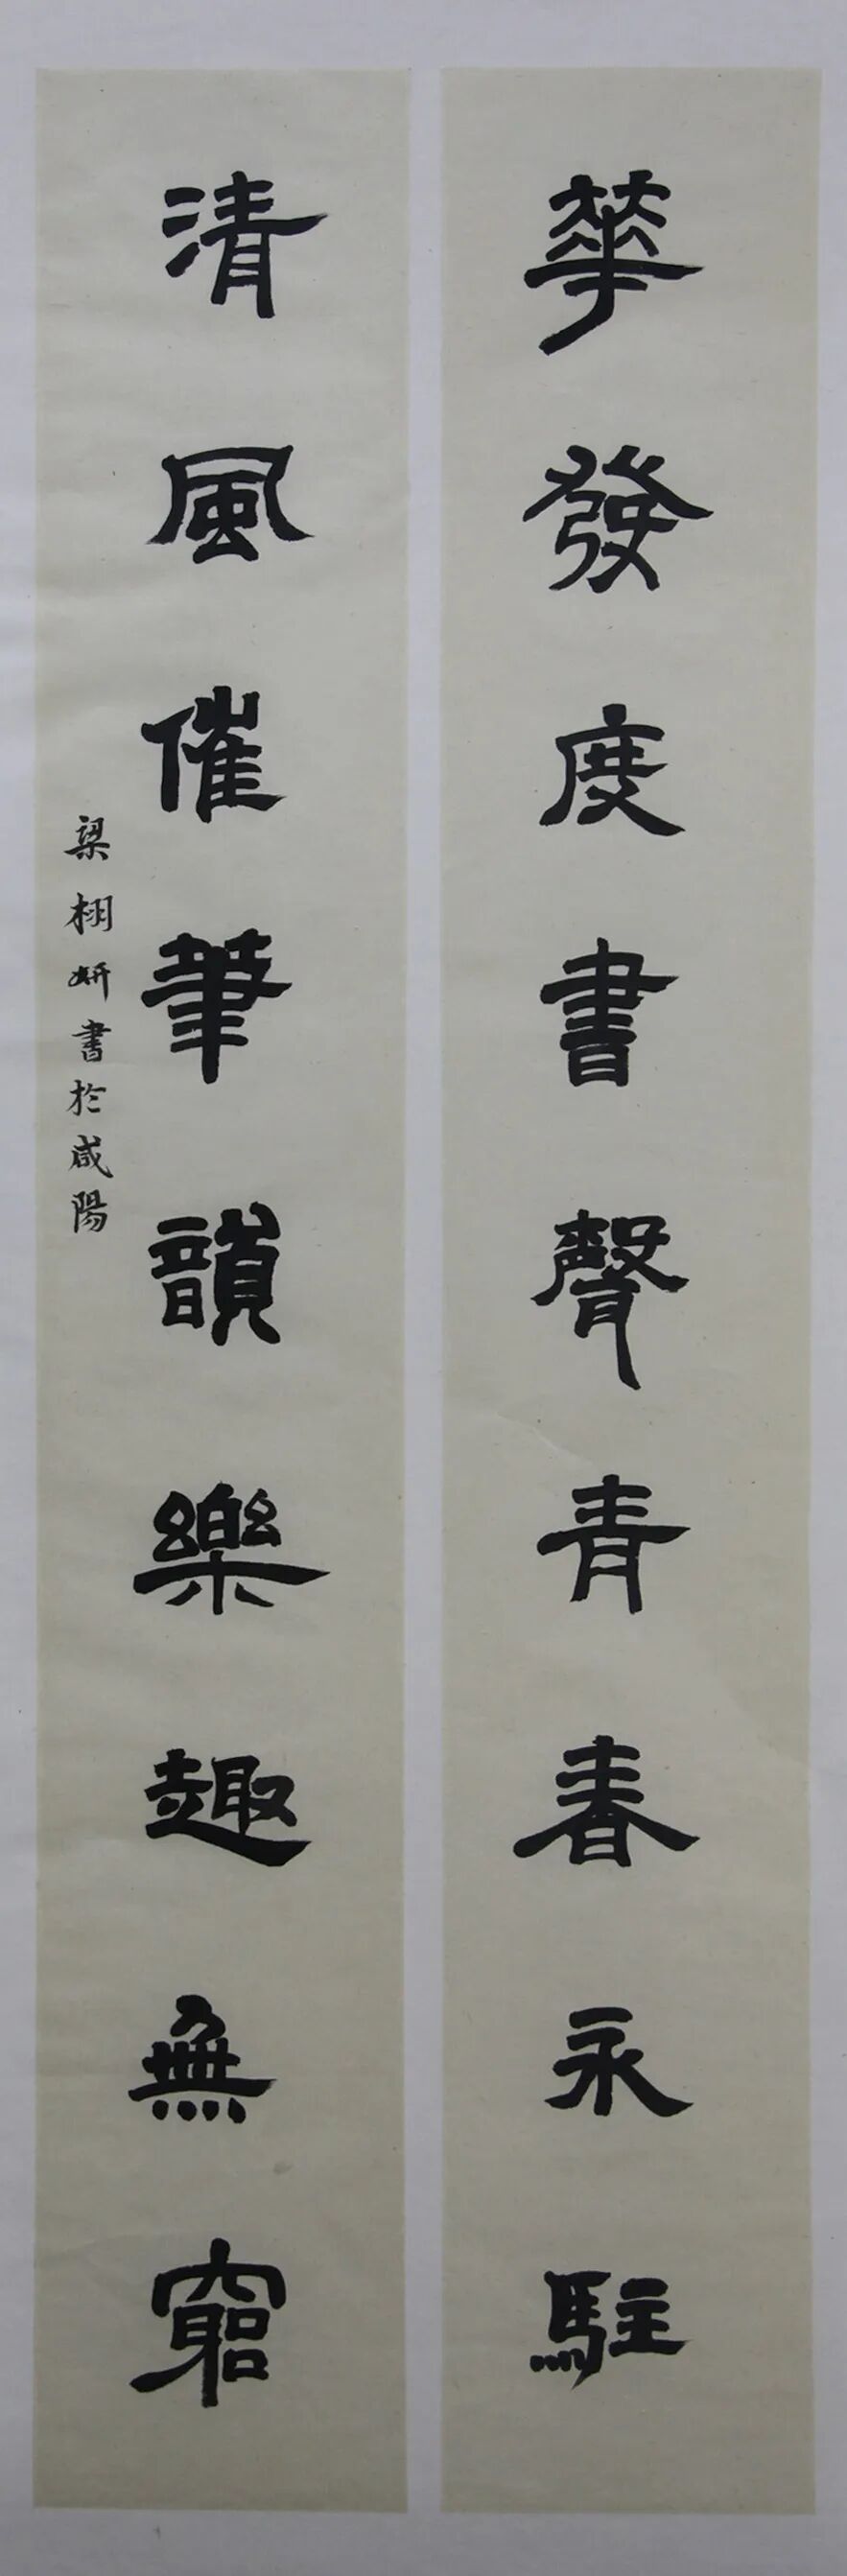 華發度書聲青春永駐
清風催筆韻樂趣無窮
梁栩妍書於咸陽